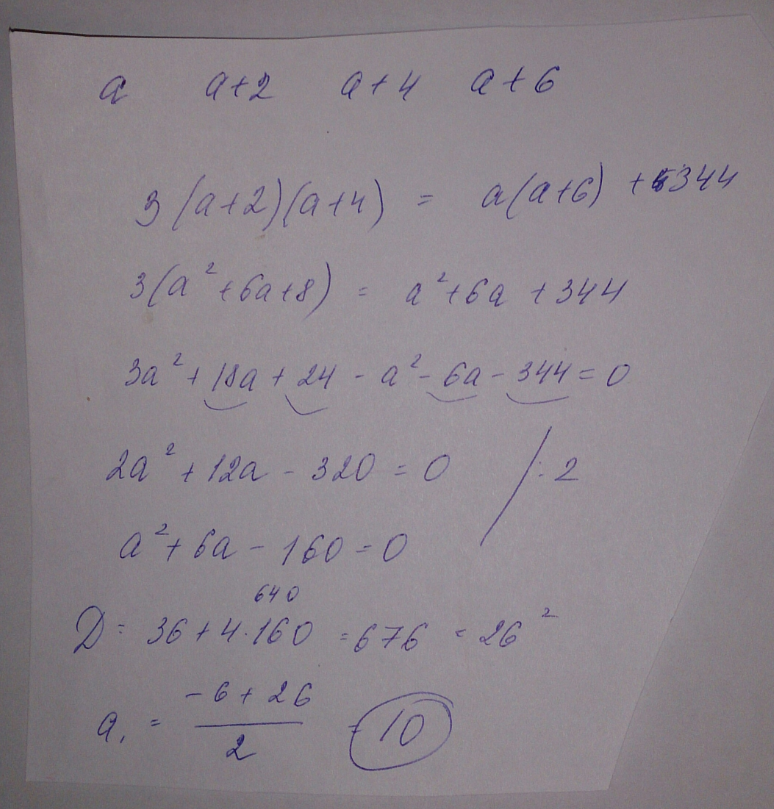 a a+2 a+4 a+6
3(a+2)(a+4) = a(a+6) + 344
3(a²+6a+8) = a²+6a + 344
3a² + 18a + 24 - a² - 6a - 344 = 0
2a² + 12a - 320 = 0 /:2
a² + 6a - 160 = 0
640
D = 36 + 4·160 = 676 = 26²
a₁ = (-6 + 26)/2 = 10